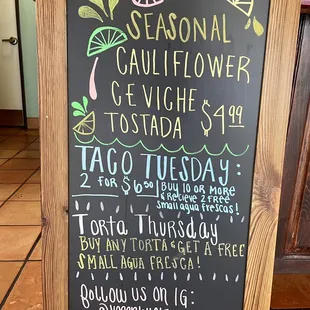 SEASONAL
CAULIFLOWER
CEVICHE
TOSTADA $4.99
TACO TUESDAY:
2 FOR $6.50
BUY 10 OR MORE
& RECIEVE 2 FREE
SMALL AGUA FRESCAS!
TORTA THURSDAY
BUY ANY TORTA & GET A FREE
SMALL AGUA FRESCA!
FOLLOW US ON IG: